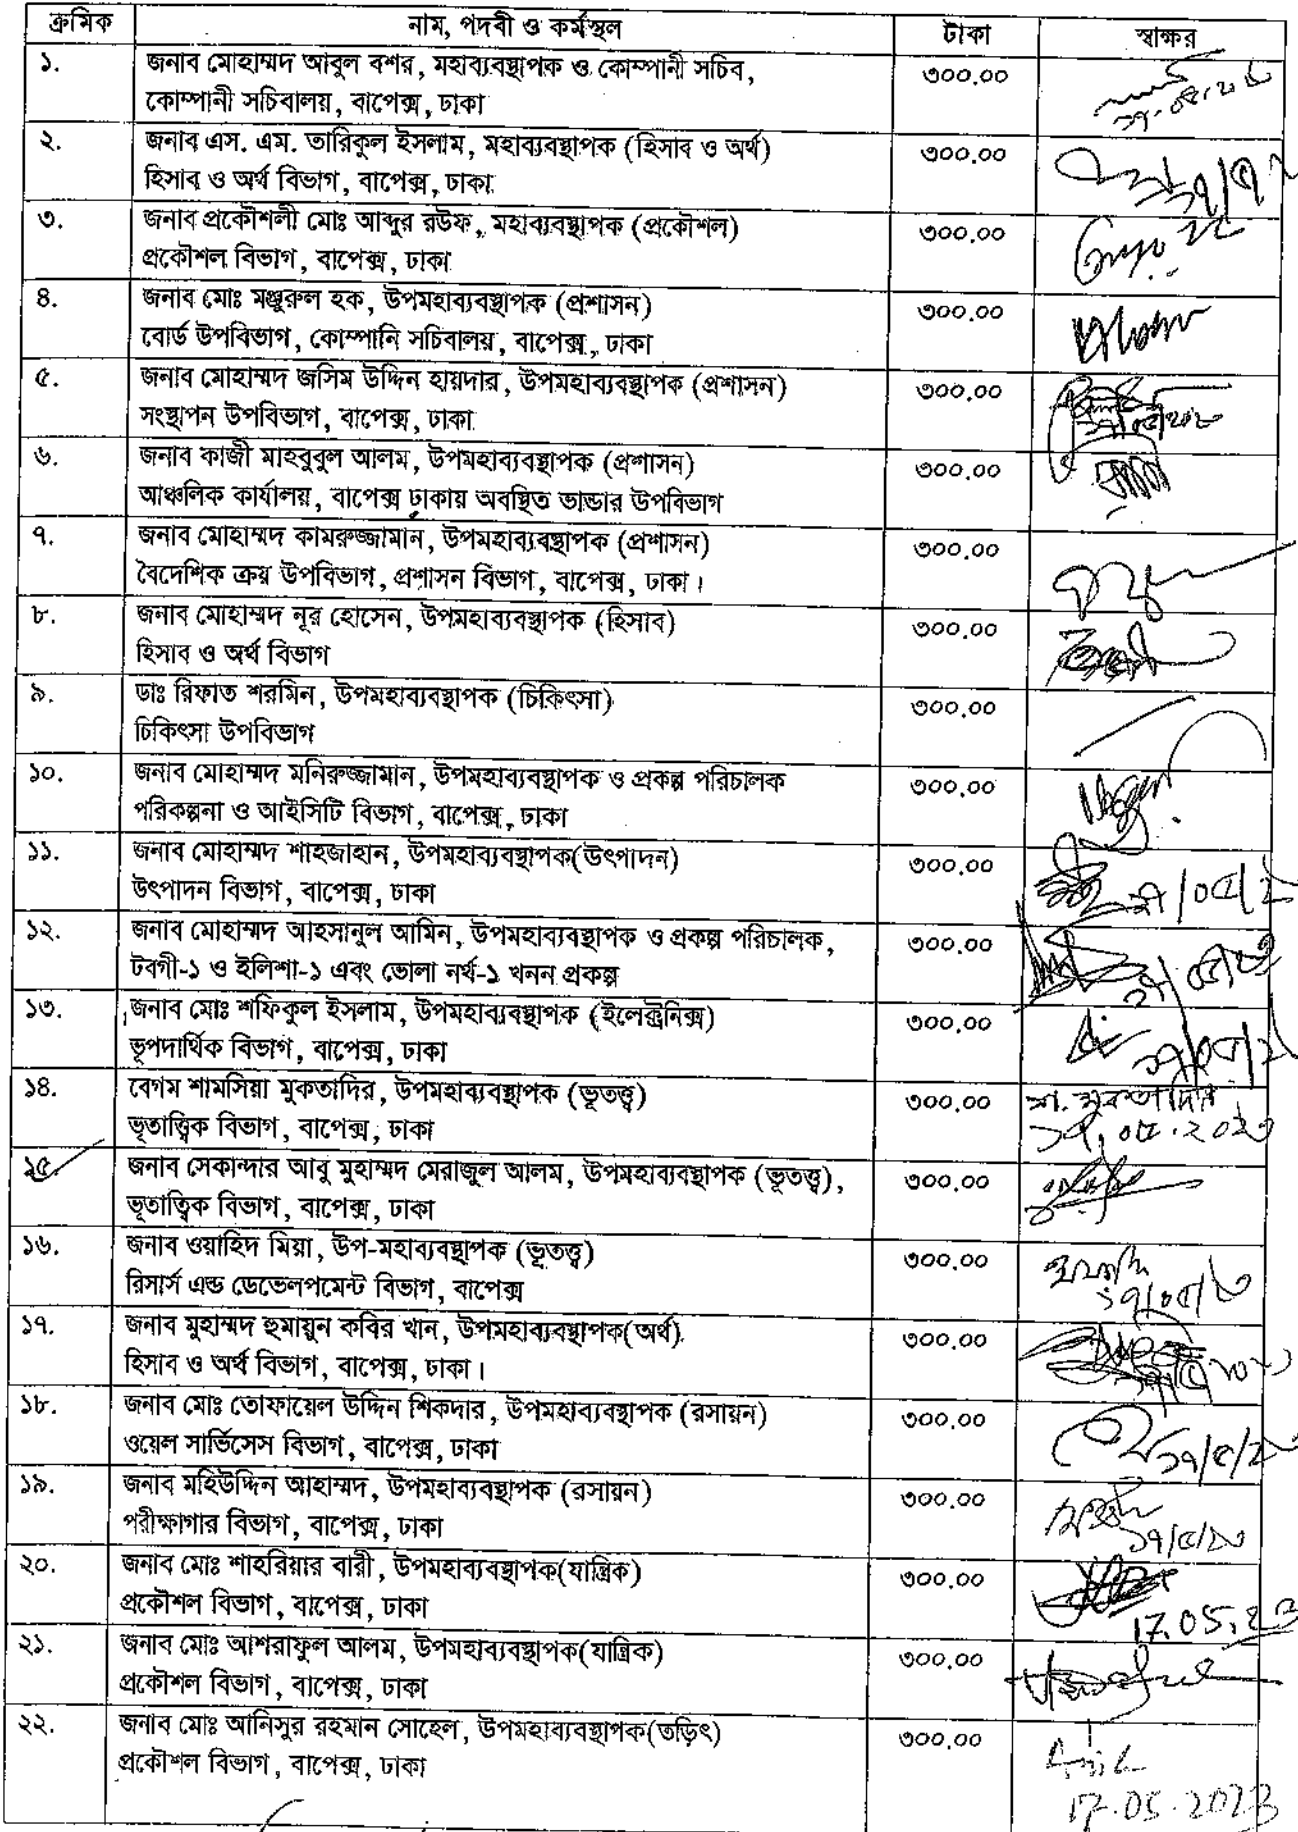 ক্রমিক নাম, পদবী ও কর্মস্থল টাকা স্বাক্ষর
১. জনাব মোহাম্মদ আবুল বশর, মহাব্যবস্থাপক ও কোম্পানী সচিব, ৩০০.০০
কোম্পানী সচিবালয়, বাপেক্স, ঢাকা
২. জনাব এস. এম. তারিকুল ইসলাম, মহাব্যবস্থাপক (হিসাব ও অর্থ) ৩০০.০০
হিসাব ও অর্থ বিভাগ, বাপেক্স, ঢাকা
৩. জনাব প্রকৌশলী মোঃ আব্দুর রউফ, মহাব্যবস্থাপক (প্রকৌশল) ৩০০.০০
প্রকৌশল বিভাগ, বাপেক্স, ঢাকা
৪. জনাব মোঃ মঞ্জুরুল হক, উপমহাব্যবস্থাপক (প্রশাসন) ৩০০.০০
বোর্ড উপবিভাগ, কোম্পানি সচিবালয়, বাপেক্স, ঢাকা
৫. জনাব মোহাম্মদ জসিম উদ্দিন হায়দার, উপমহাব্যবস্থাপক (প্রশাসন) ৩০০.০০
সংস্থাপন উপবিভাগ, বাপেক্স, ঢাকা
৬. জনাব কাজী মাহবুবুল আলম, উপমহাব্যবস্থাপক (প্রশাসন) ৩০০.০০
আঞ্চলিক কার্যালয়, বাপেক্স ঢাকায় অবস্থিত ভান্ডার উপবিভাগ
৭. জনাব মোহাম্মদ কামরুজ্জামান, উপমহাব্যবস্থাপক (প্রশাসন) ৩০০.০০
বৈদেশিক ক্রয় উপবিভাগ, প্রশাসন বিভাগ, বাপেক্স, ঢাকা।
৮. জনাব মোহাম্মদ নূর হোসেন, উপমহাব্যবস্থাপক (হিসাব) ৩০০.০০
হিসাব ও অর্থ বিভাগ
৯. ডাঃ রিফাত শরমিন, উপমহাব্যবস্থাপক (চিকিৎসা) ৩০০.০০
চিকিৎসা উপবিভাগ
১০. জনাব মোহাম্মদ মনিরুজ্জামান, উপমহাব্যবস্থাপক ও প্রকল্প পরিচালক ৩০০.০০
পরিকল্পনা ও আইসিটি বিভাগ, বাপেক্স, ঢাকা
১১. জনাব মোহাম্মদ শাহজাহান, উপমহাব্যবস্থাপক(উৎপাদন) ৩০০.০০
উৎপাদন বিভাগ, বাপেক্স, ঢাকা
১২. জনাব মোহাম্মদ আহসানুল আমিন, উপমহাব্যবস্থাপক ও প্রকল্প পরিচালক, ৩০০.০০
টবগী-১ ও ইলিশা-১ এবং ভোলা নর্থ-১ খনন প্রকল্প
১৩. জনাব মোঃ শফিকুল ইসলাম, উপমহাব্যবস্থাপক (ইলেক্ট্রনিক্স) ৩০০.০০
ভূপদার্থিক বিভাগ, বাপেক্স, ঢাকা
১৪. বেগম শামসিয়া মুকতাদির, উপমহাব্যবস্থাপক (ভূতত্ত্ব) ৩০০.০০ শা. মুকতাদির
ভূতাত্ত্বিক বিভাগ, বাপেক্স, ঢাকা ১৭.০৫.২০২৩
১৫. জনাব সেকান্দার আবু মুহাম্মদ মেরাজুল আলম, উপমহাব্যবস্থাপক (ভূতত্ত্ব), ৩০০.০০
ভূতাত্বিক বিভাগ, বাপেক্স, ঢাকা
১৬. জনাব ওয়াহিদ মিয়া, উপ-মহাব্যবস্থাপক (ভূতত্ত্ব) ৩০০.০০
রিসার্স এন্ড ডেভেলপমেন্ট বিভাগ, বাপেক্স
১৭. জনাব মুহাম্মদ হুমায়ুন কবির খান, উপমহাব্যবস্থাপক(অর্থ) ৩০০.০০
হিসাব ও অর্থ বিভাগ, বাপেক্স, ঢাকা।
১৮. জনাব মোঃ তোফায়েল উদ্দিন শিকদার, উপমহাব্যবস্থাপক (রসায়ন) ৩০০.০০
ওয়েল সার্ভিসেস বিভাগ, বাপেক্স, ঢাকা ১৭/৫/২৩
১৯. জনাব মহিউদ্দিন আহাম্মদ, উপমহাব্যবস্থাপক (রসায়ন) ৩০০.০০
পরীক্ষাগার বিভাগ, বাপেক্স, ঢাকা ১৭/৫/২৩
২০. জনাব মোঃ শাহরিয়ার বারী, উপমহাব্যবস্থাপক(যান্ত্রিক) ৩০০.০০
প্রকৌশল বিভাগ, বাপেক্স, ঢাকা 17.05.23
২১. জনাব মোঃ আশরাফুল আলম, উপমহাব্যবস্থাপক(যান্ত্রিক) ৩০০.০০
প্রকৌশল বিভাগ, বাপেক্স, ঢাকা
২২. জনাব মোঃ আনিসুর রহমান সোহেল, উপমহাব্যবস্থাপক(তড়িৎ) ৩০০.০০
প্রকৌশল বিভাগ, বাপেক্স, ঢাকা
17.05.2023